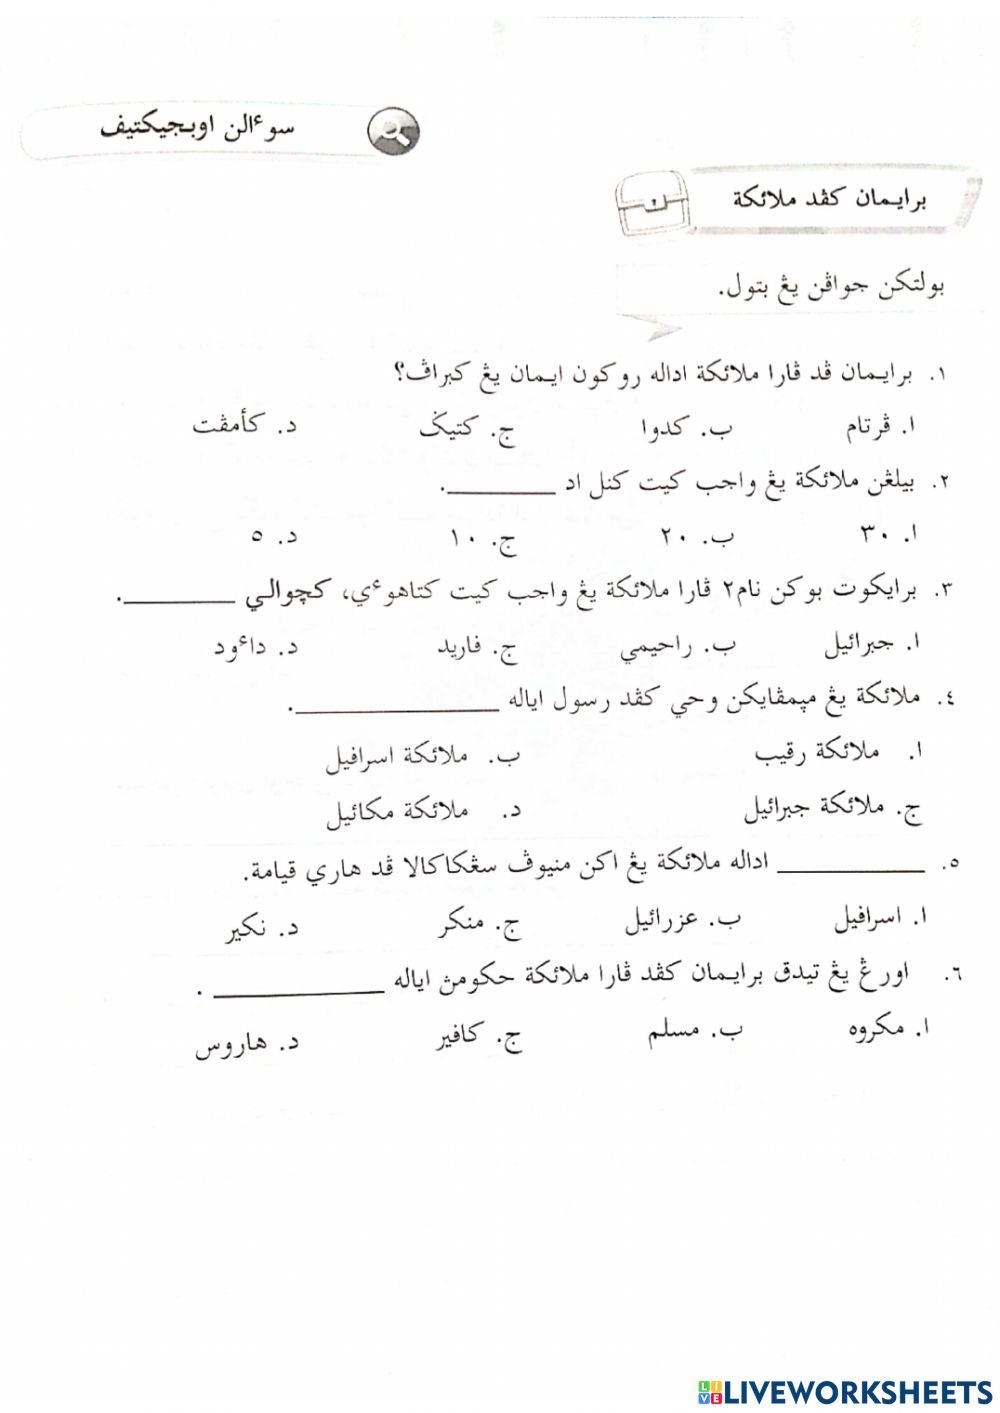 سوءالن اوبجيكتيف
برايمان کڤد ملائكة
بولتکن جواڤن يڠ بتول.
١. برايمان ڤد ڤارا ملائكة اداله روکون ايمان يڠ کبراڤ؟
ا. ڤرتام ب. کدوا ج. کتيݢ د. کأمڤت
٢. بيلڠن ملائكة يڠ واجب کيت کنل اد ________.
ا. ٣٠ ب. ٢٠ ج. ١٠ د. ٥
٣. برايکوت بوکن نام٢ ڤارا ملائكة يڠ واجب کيت کتاهوءي، کچوالي ________.
ا. جبرائيل ب. راحيمي ج. فاريد د. داءود
٤. ملائكة يڠ مڽمڤايکن وحي کڤد رسول اياله ______________.
ا. ملائكة رقيب ب. ملائكة اسرافيل
ج. ملائكة جبرائيل د. ملائكة مكائيل
٥. __________ اداله ملائكة يڠ اکن منيوڤ سڠكاكالا ڤد هاري قيامة.
ا. اسرافيل ب. عزرائيل ج. منكر د. نكير
٦. اورڠ يڠ تيدق برايمان کڤد ڤارا ملائكة حکومڽ اياله ____________ .
ا. مکروه ب. مسلم ج. کافير د. هاروس
LIVE LIVEWORKSHEETS